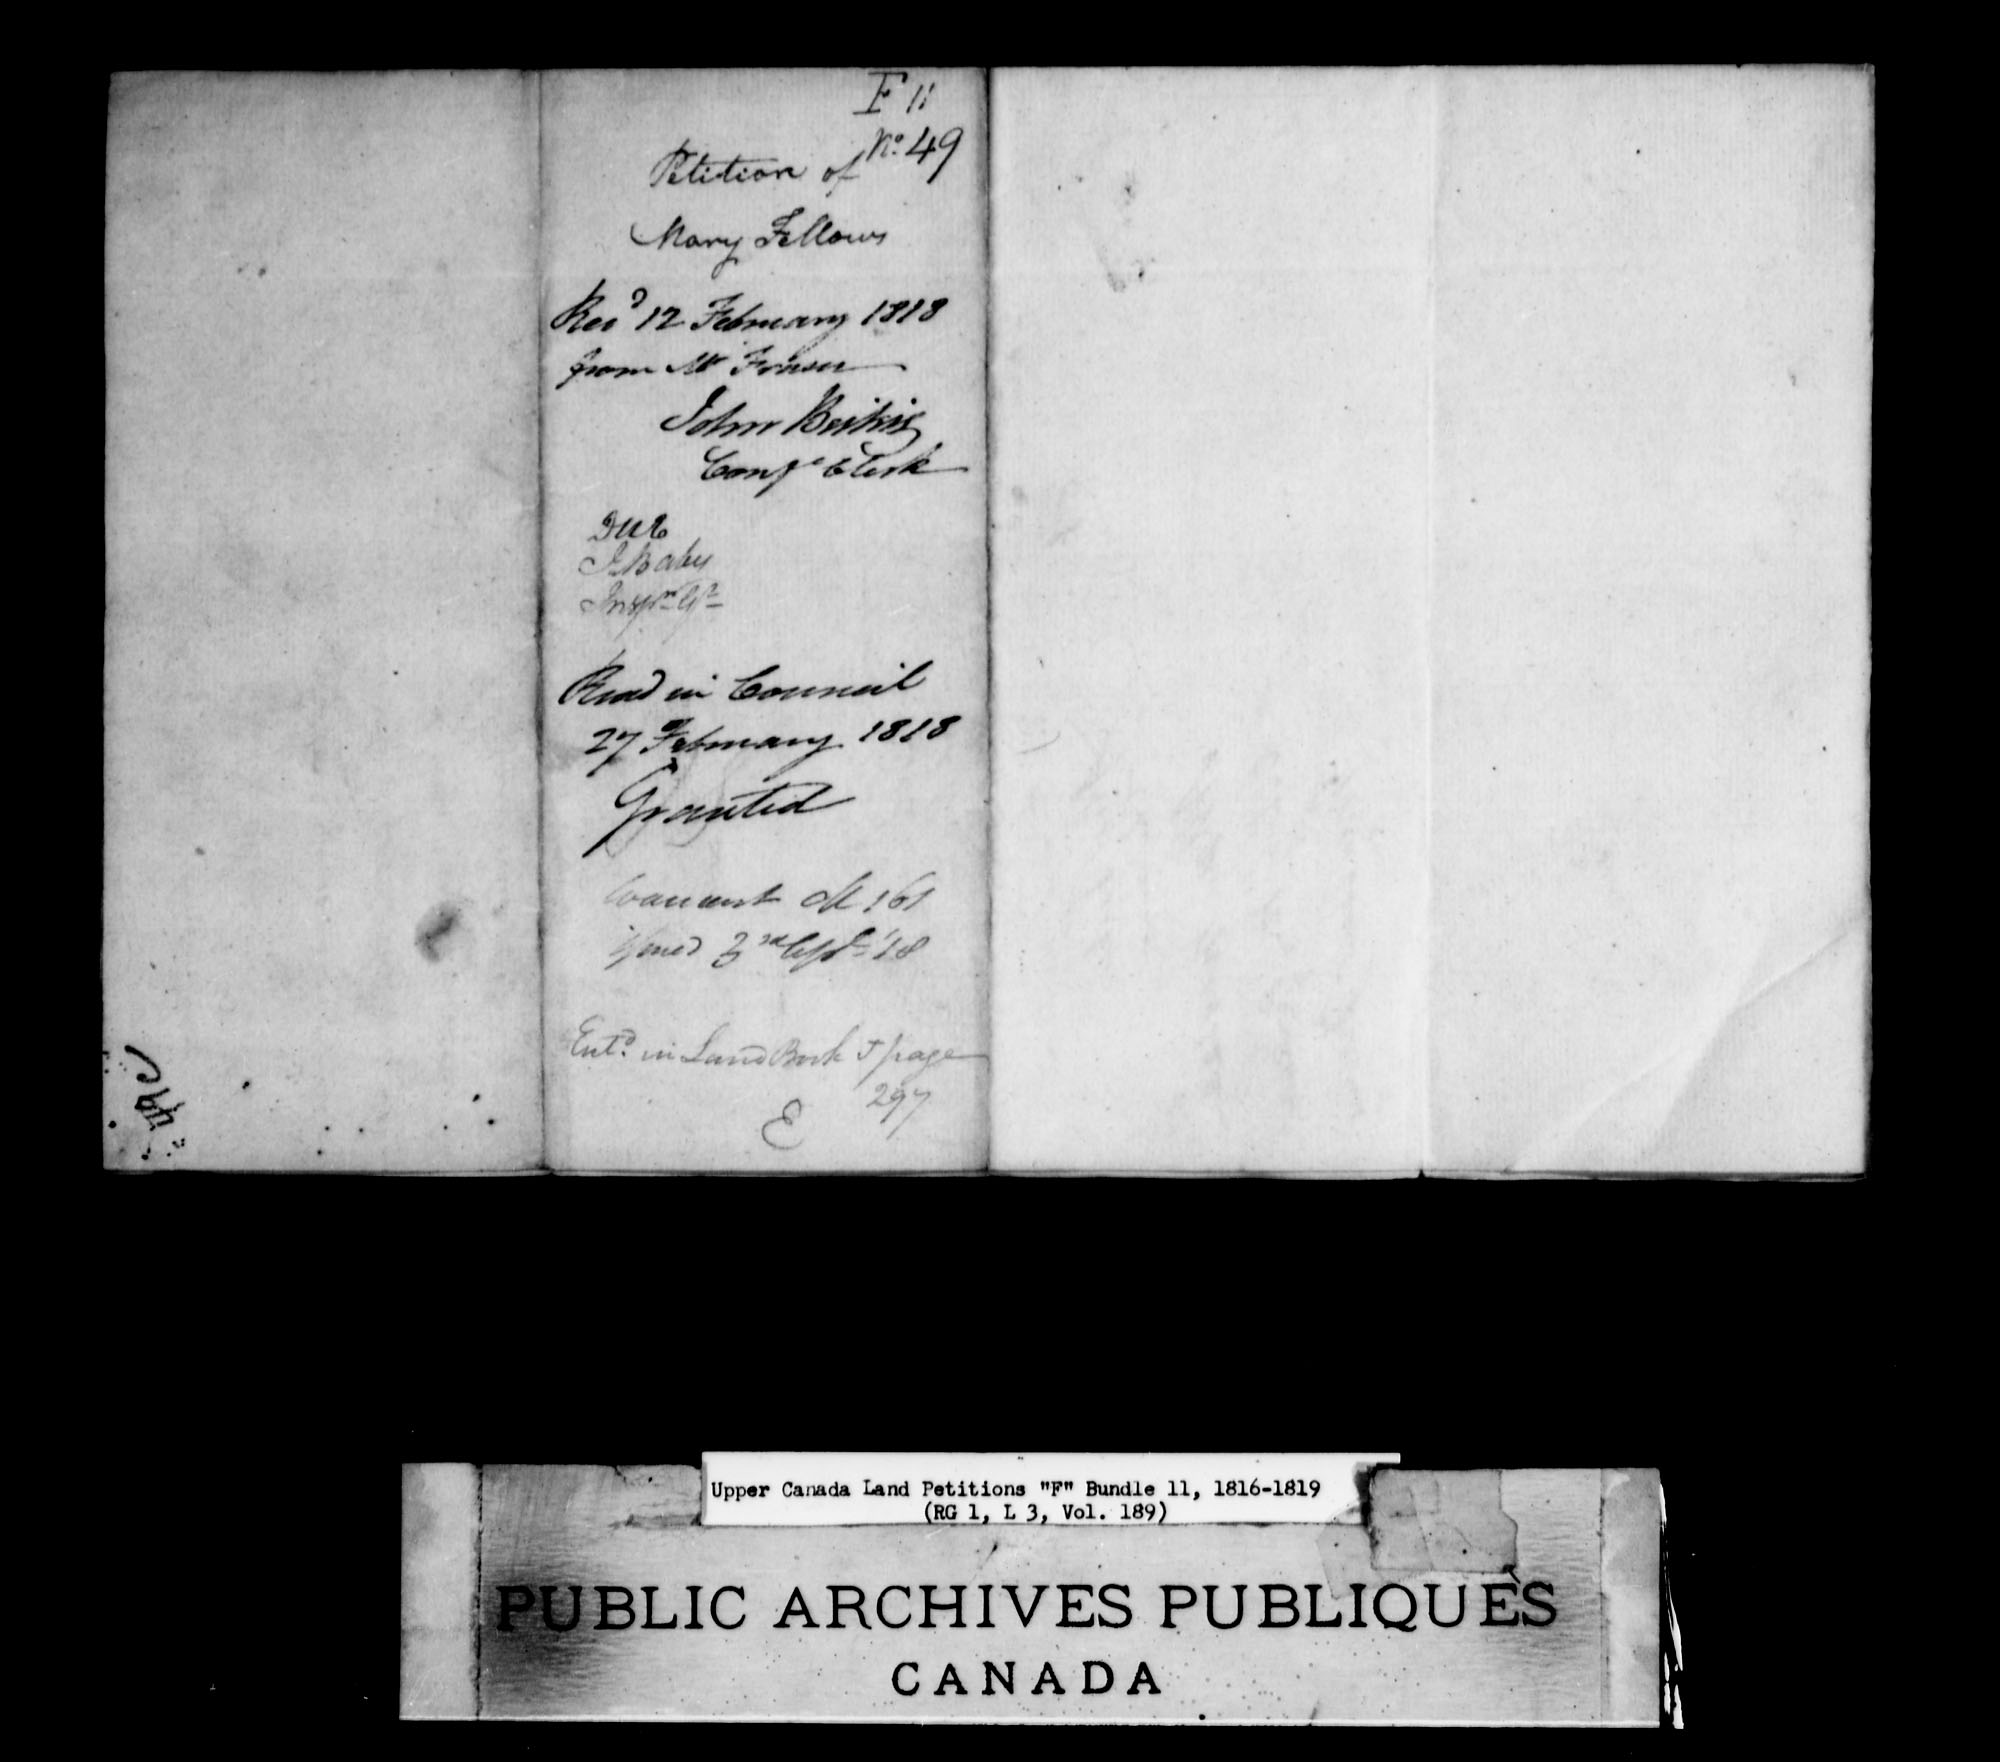 F 11
No. 49
Petition of
Mary Fellows
Recd 12 February 1818
from Mr Fraser
John Beikie
Confl Clerk
Due
J. Baby
Inspr Gl
Read in Council
27 February 1818
Granted
Warrant M 161
issued 3rd Sepr '18
Entd in Land Book J page
297
E
49c
Upper Canada Land Petitions "F" Bundle 11, 1816-1819
(RG 1, L 3, Vol. 189)
PUBLIC ARCHIVES PUBLIQUES
CANADA